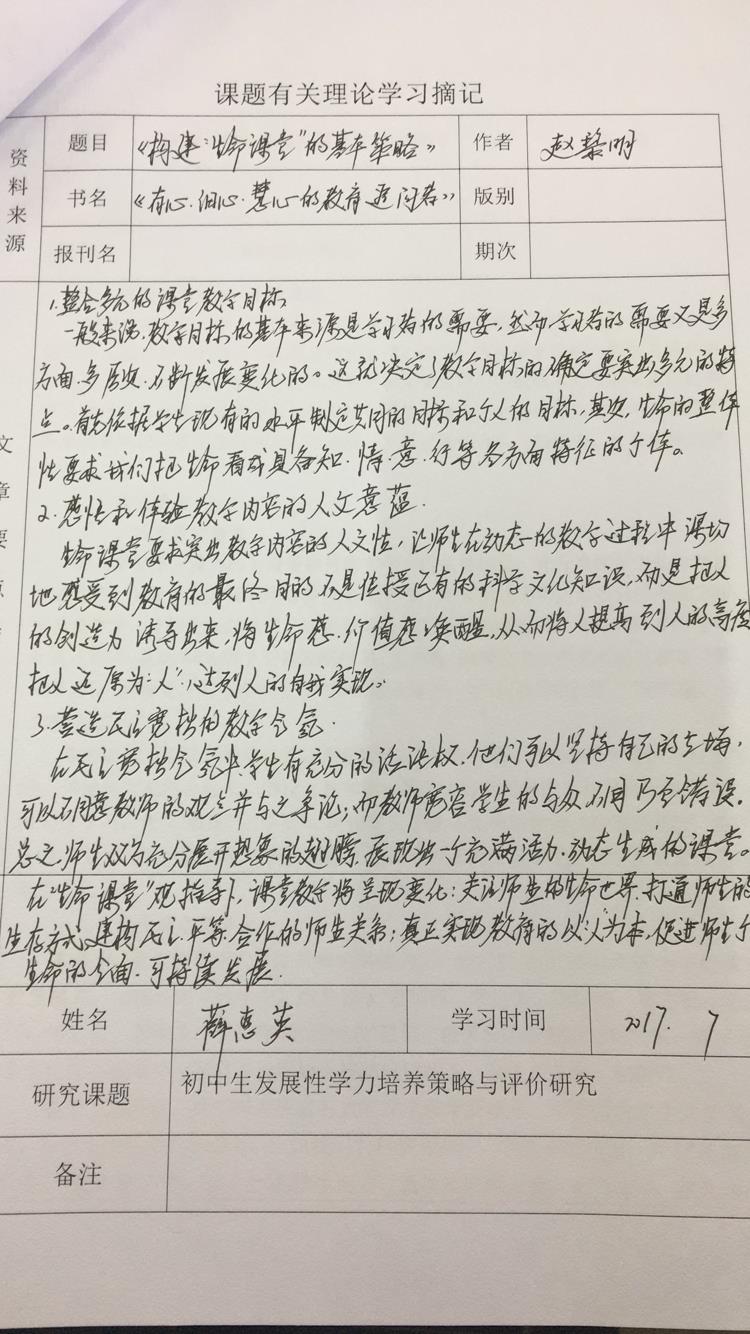 课题有关理论学习摘记
资料来源
题目 《构建“生命课堂”的基本策略》 作者 赵黎明
书名 《有心·用心·慧心的教育追问者》 版别
报刊名 期次
文章要点
1.整合多元的课堂教学目标
一般来说,教学目标的基本来源是学习者的需要,然而学习者的需要又是多
方面、多层次、不断发展变化的。这就决定了教学目标的确定要突出多元的特
点。首先依据学生现有的水平制定共同的目标和个人的目标,其次,生命的整体
性要求我们把生命看成具备知、情、意、行等各方面特征的个体。
2.感悟和体验教学内容的人文意蕴.
生命课堂要求突出教学内容的人文性,让师生在动态的教学过程中深切
地感受到教育的最终目的不是传授已有的科学文化知识,而是把人
的创造力诱导出来,将生命感、价值感唤醒,从而将人提高到人的高度
把人还原为“人”,达到人的自我实现。
3.营造民主宽松的教学气氛.
在民主宽松气氛中,学生有充分的话语权,他们可以坚持自己的立场,
可以不同意教师的观点并与之争论;而教师宽容学生的与众不同乃至错误。
总之,师生双方充分展开想象的翅膀,展现出一个充满活力、动态生成的课堂。
在“生命课堂”观指导下,课堂教学将呈现变化:关注师生的生命世界,打通师生的
生存方式,建构民主、平等、合作的师生关系;真正实现教育的以人为本,促进师生个
生命的全面、可持续发展.
姓名 薛惠英 学习时间 2017. 7
研究课题 初中生发展性学力培养策略与评价研究
备注